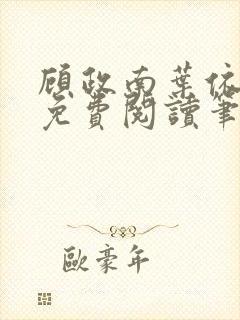 顾政南葉依
免費閱讀筆
歐豪年